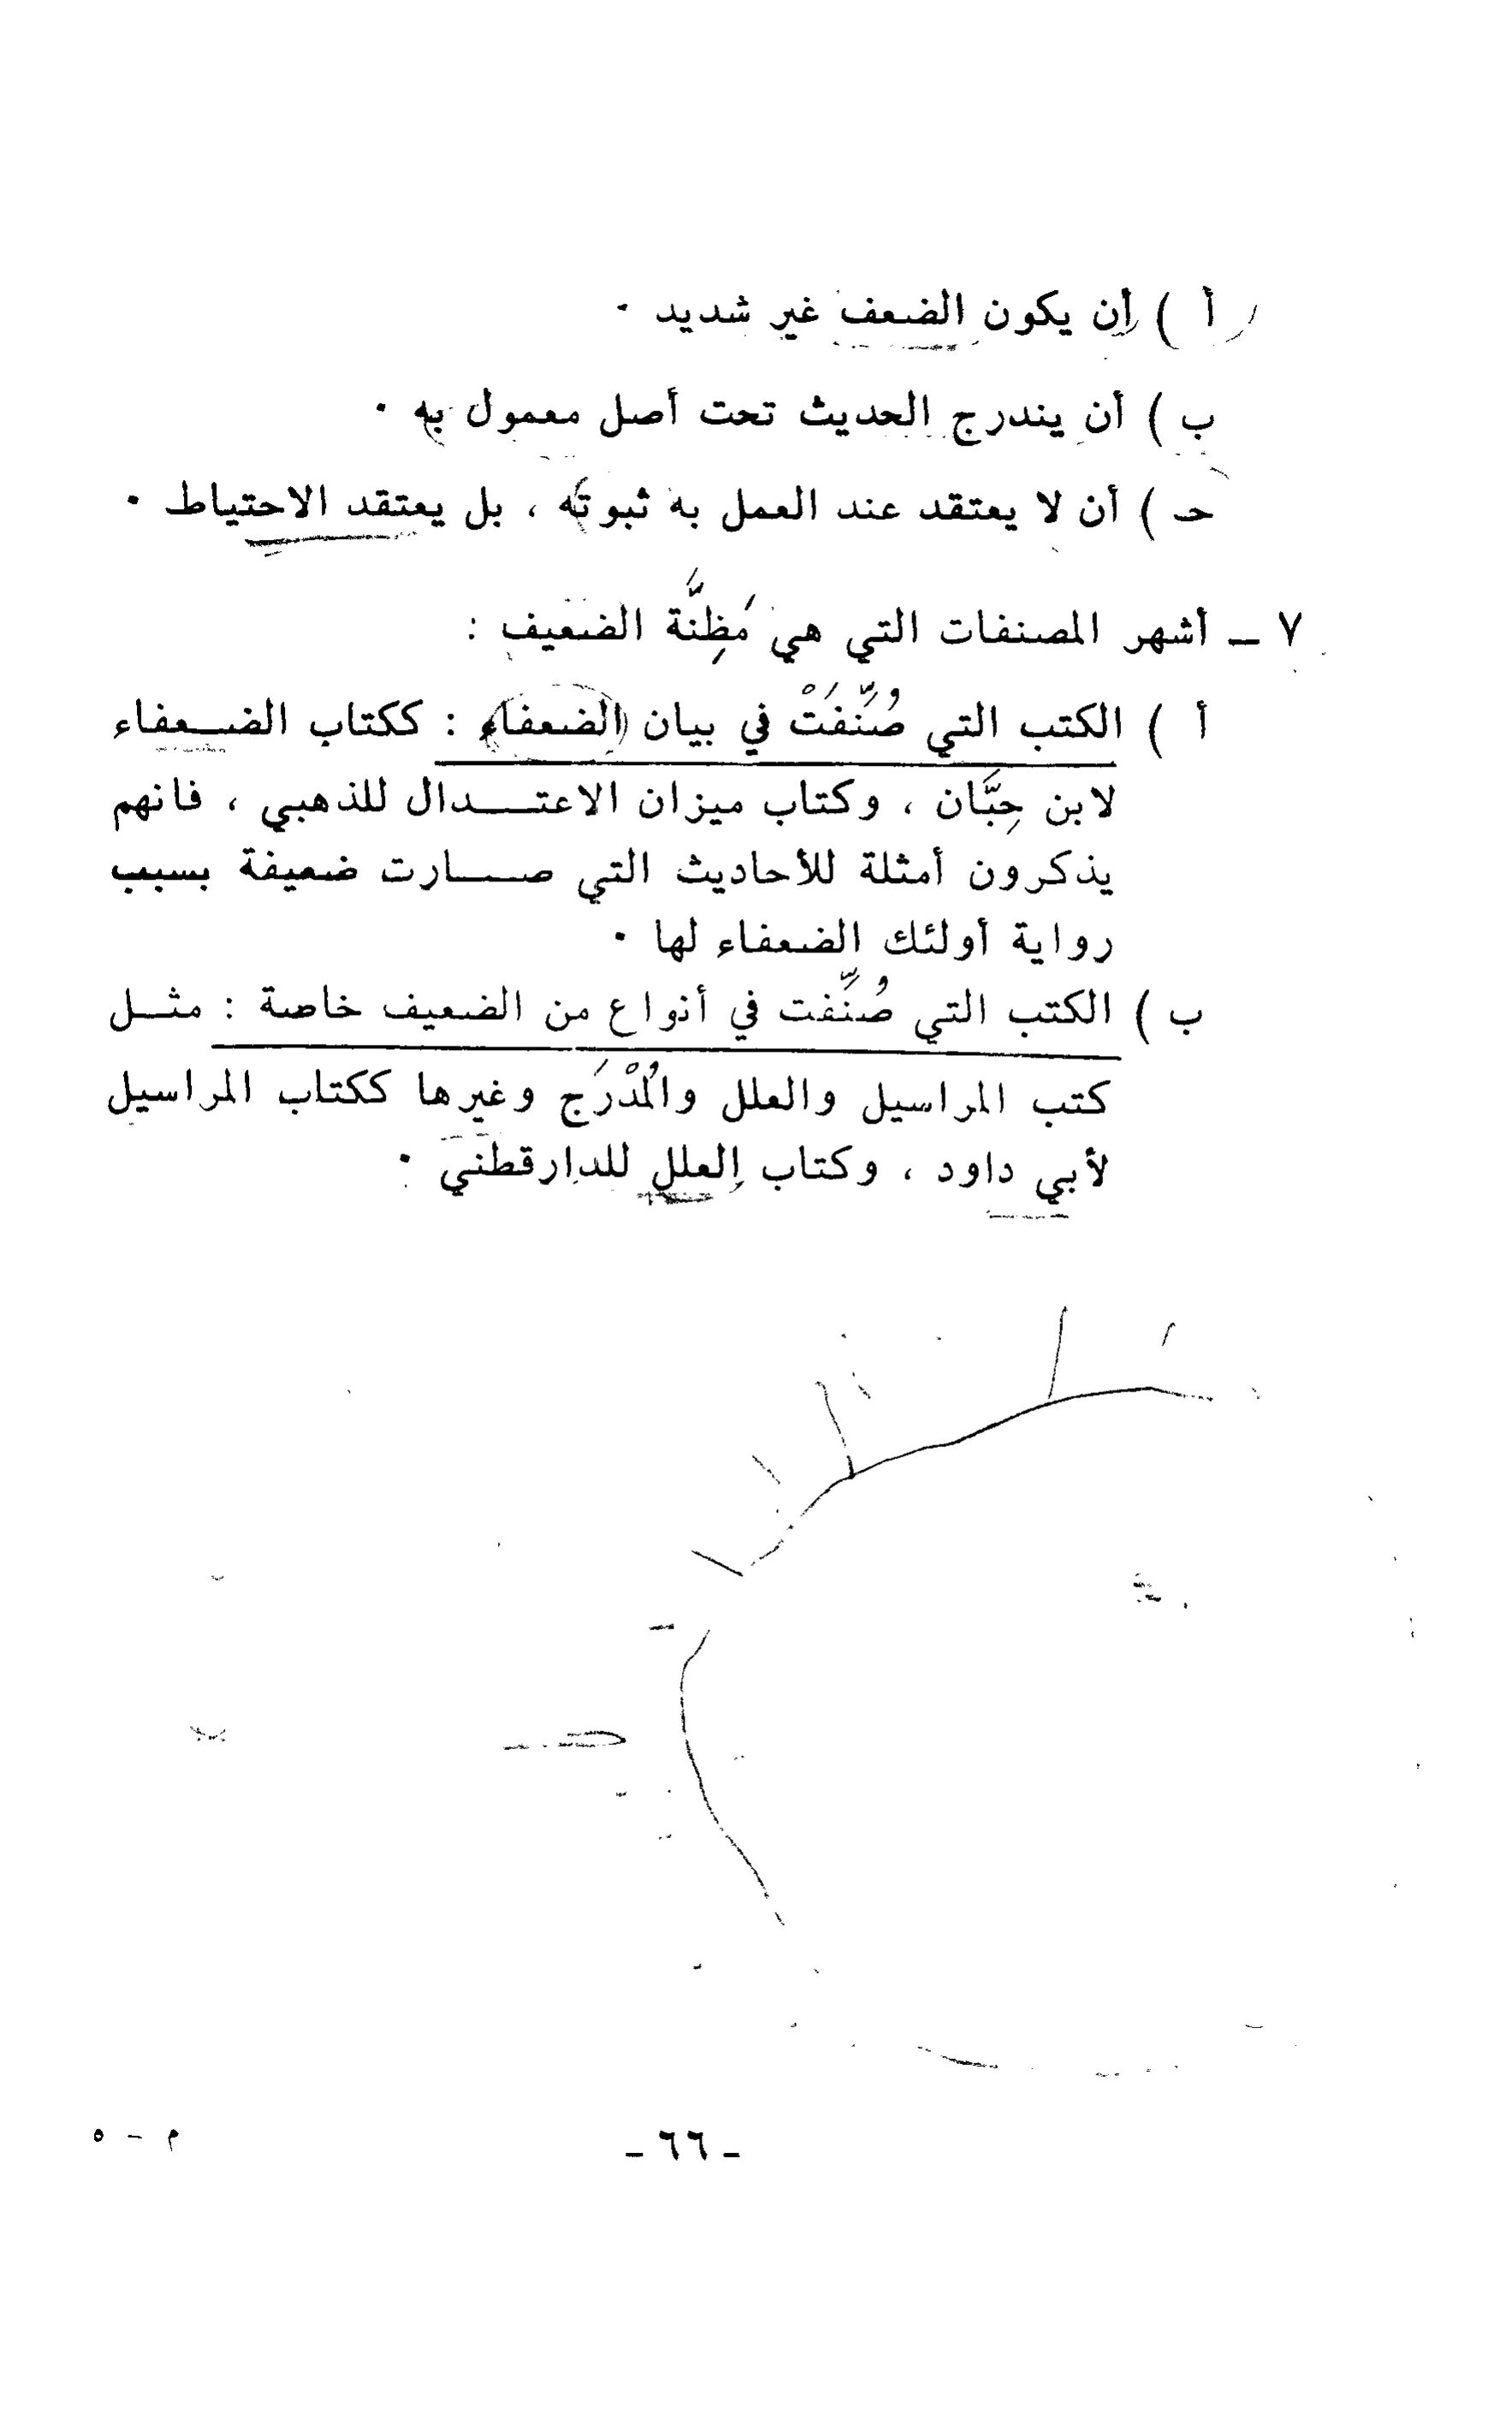 أ ) أن يكون الضعف غير شديد ٠
ب ) أن يندرج الحديث تحت أصل معمول به ٠
حـ ) أن لا يعتقد عند العمل به ثبوته ، بل يعتقد الاحتياط ٠
٧ ــ أشهر المصنفات التي هي مَظِنَّة الضعيف :
أ ) الكتب التي صُنِّفَتْ في بيان الضعفاء : ككتاب الضـــعفاء
لابن حِبَّان ، وكتاب ميزان الاعتـــدال للذهبي ، فانهم
يذكرون أمثلة للأحاديث التي صـــارت ضعيفة بسبب
رواية أولئك الضعفاء لها ٠
ب ) الكتب التي صُنِّفت في أنواع من الضعيف خاصة : مثــل
كتب المراسيل والعلل والمُدْرَج وغيرها ككتاب المراسيل
لأبي داود ، وكتاب العلل للدارقطني ٠
ـ ٦٦ ـ
م ـ ٥